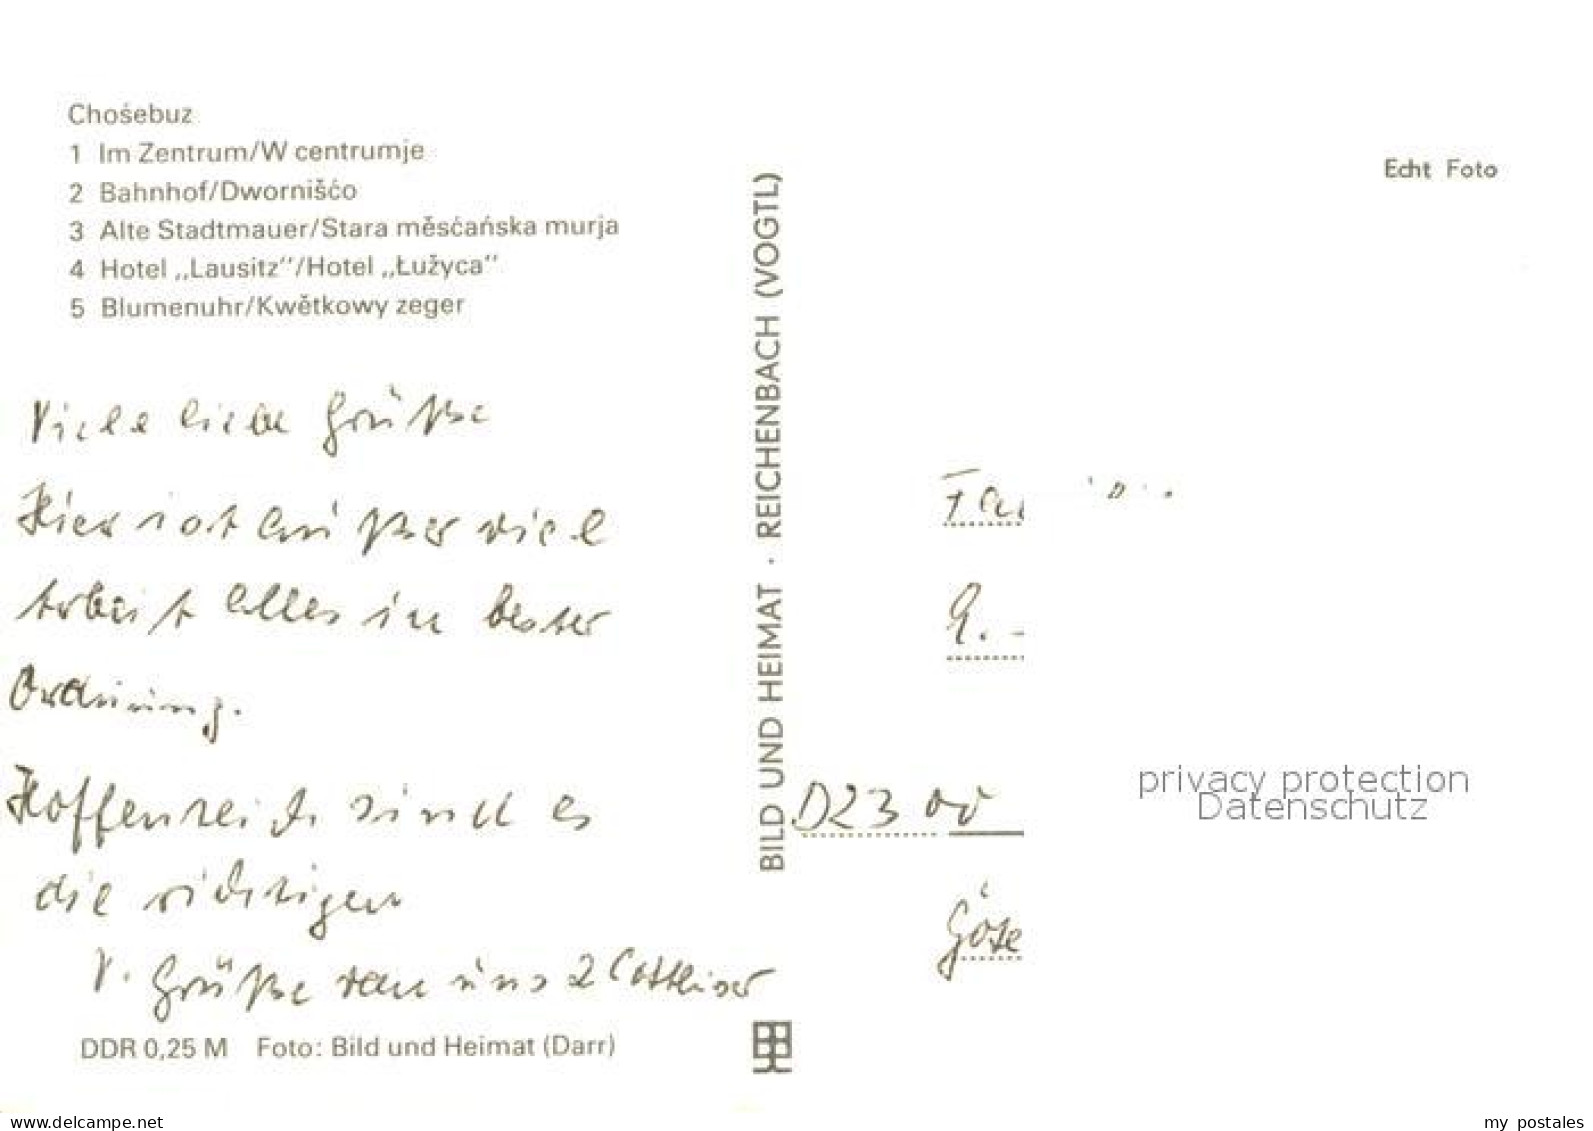 Chośebuz
1 Im Zentrum/W centrumje
2 Bahnhof/Dwornišćo
3 Alte Stadtmauer/Stara měsćańska murja
4 Hotel „Lausitz"/Hotel „Łužyca"
5 Blumenuhr/Kwětkowy zeger
Viele liebe Grüße
Hier ist außer viel
Arbeit alles in bester
Ordnung.
Hoffenlich sind es
die richtigen
V. Grüße von uns 2 Cottbuser
DDR 0,25 M Foto: Bild und Heimat (Darr)
BILD UND HEIMAT · REICHENBACH (VOGTL)
Echt Foto
D2300
privacy protection
Datenschutz
www.delcampe.net
my_postales